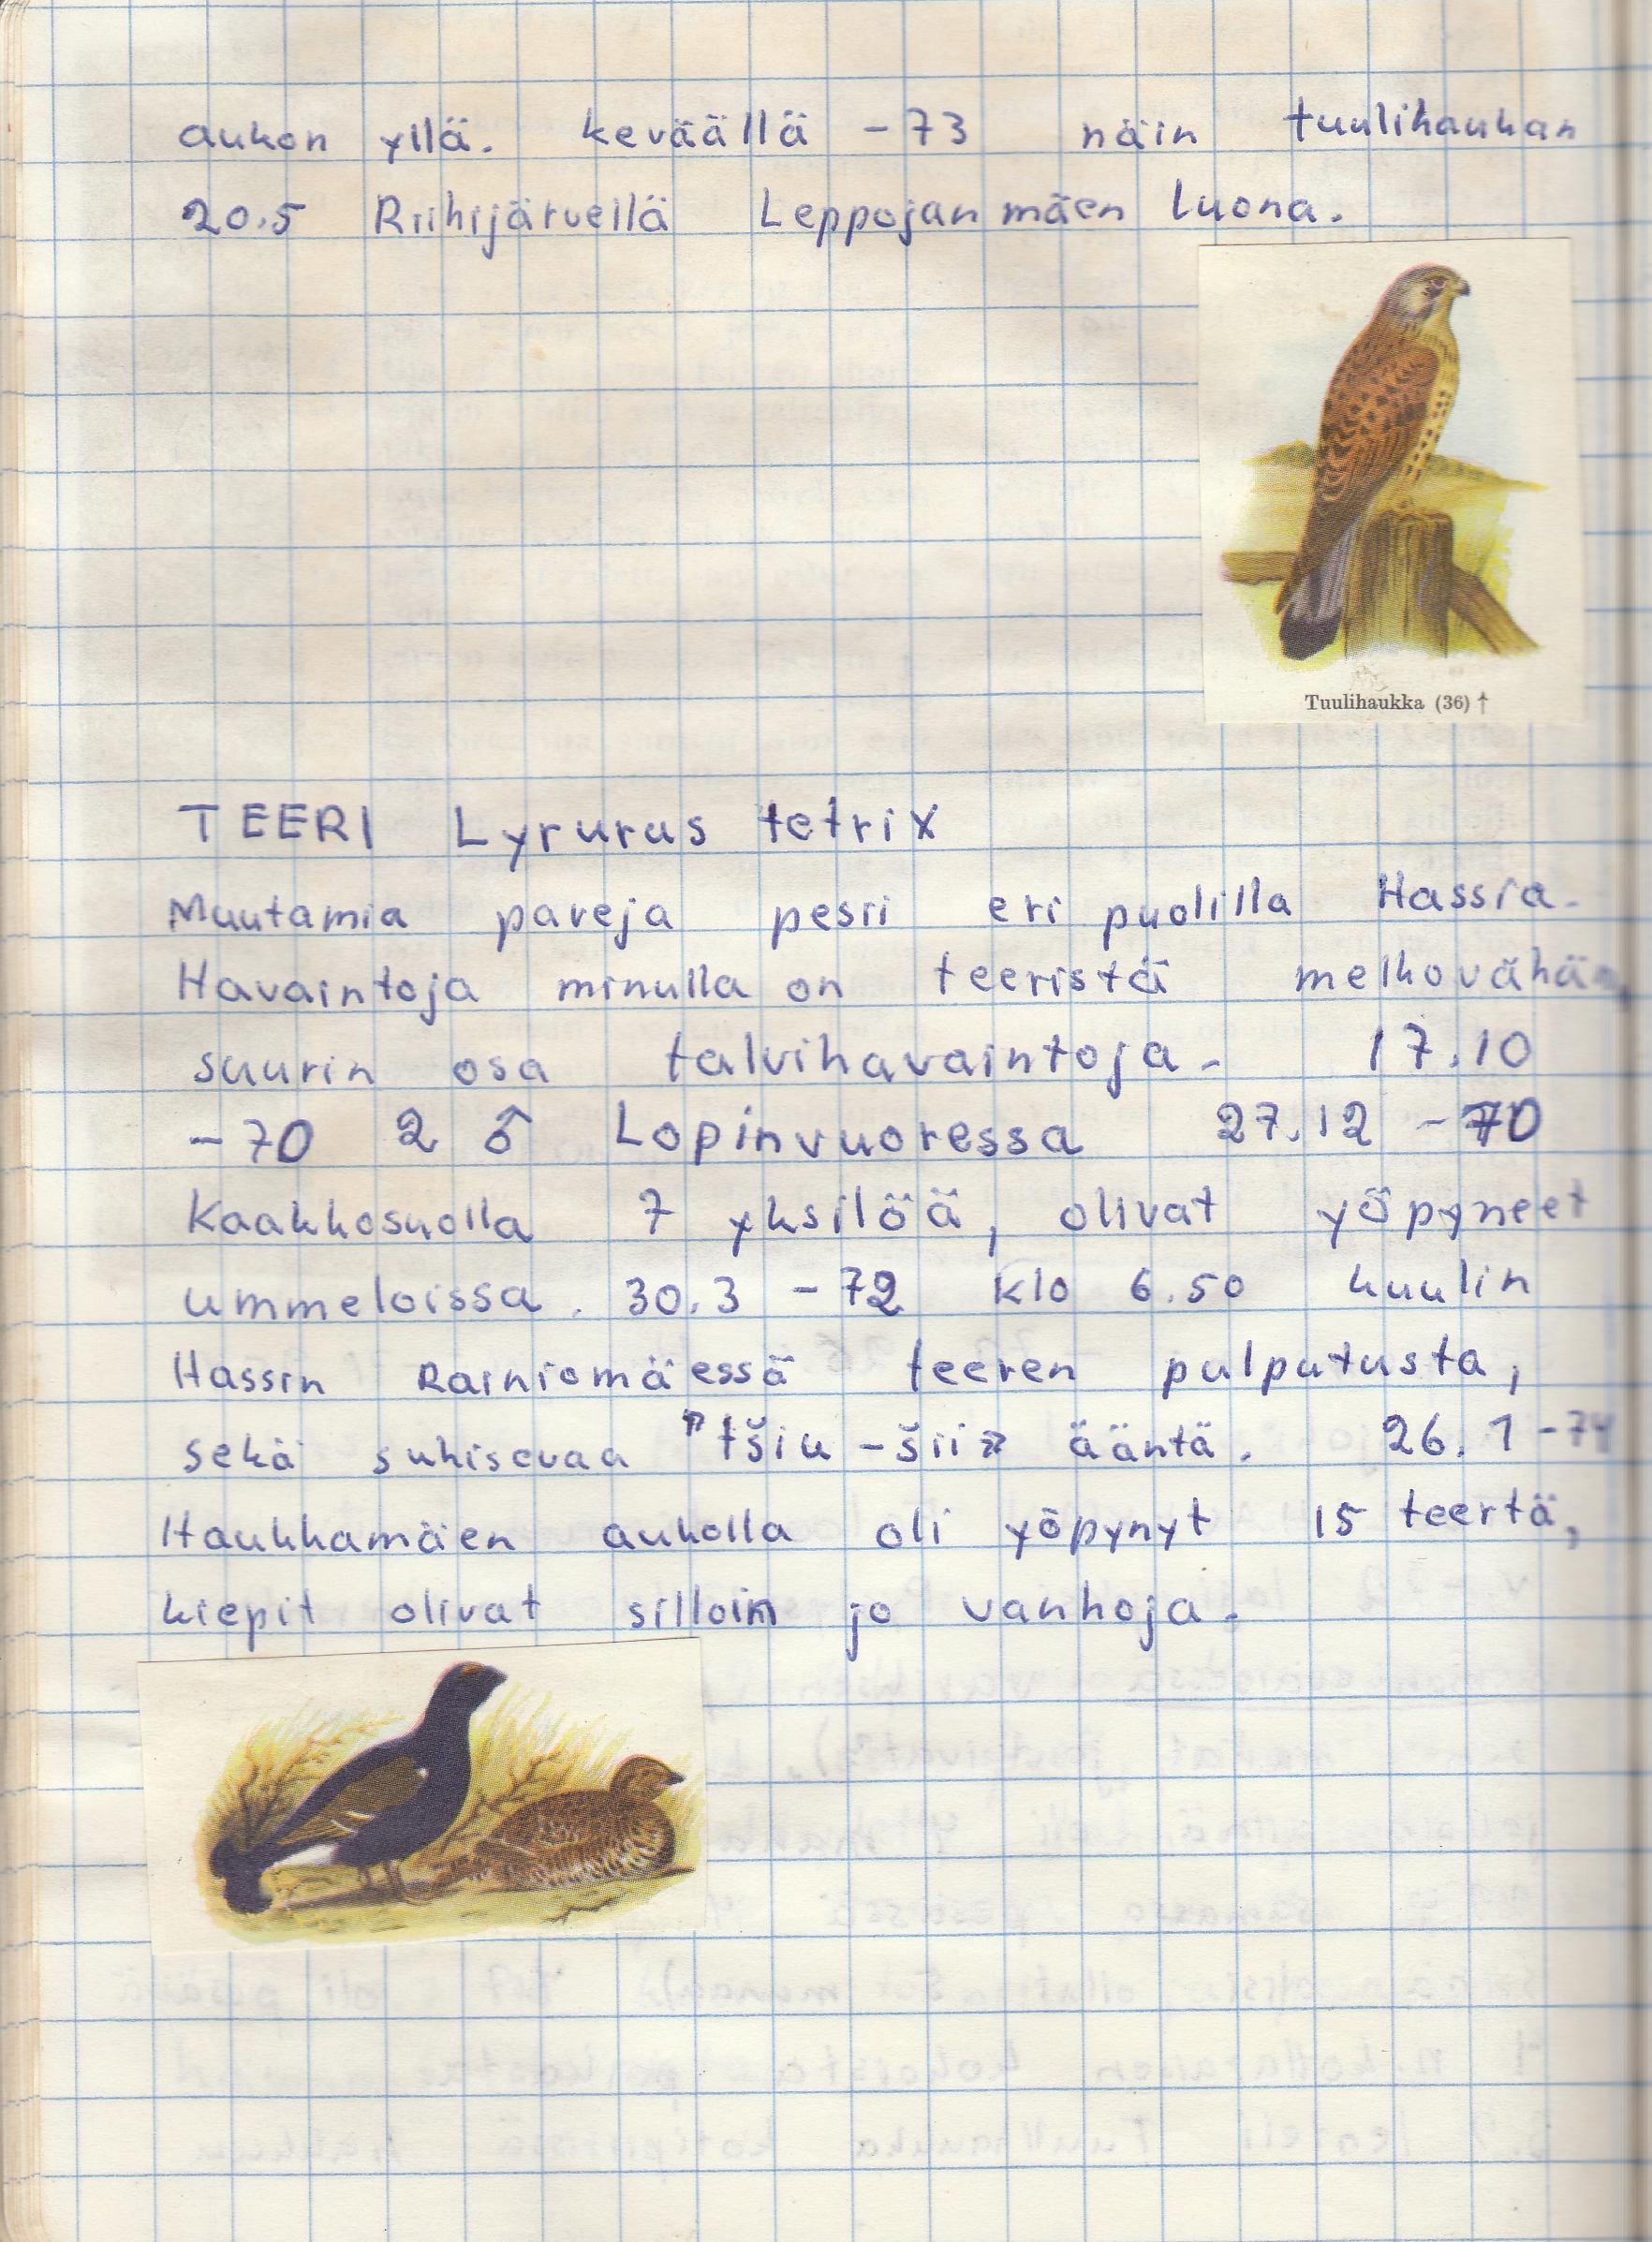 aukon yllä. keväällä -73 näin tuulihaukan
20.5 Riihijärvellä Leppojanmäen luona.
Tuulihaukka (36) ↑
TEERI Lyrurus tetrix
Muutamia pareja pesii eri puolilla Hassia.
Havaintoja minulla on teeristä melko vähän,
suurin osa talvihavaintoja. 17.10
-70 2 ♂ Lopinvuoressa 27.12 -70
Kaakkosuolla 7 yksilöä, olivat yöpyneet
ummeloissa. 30.3 -72 klo 6.50 kuulin
Hassin Rainiomäessä teeren pulputusta,
sekä suhisevaa "tšiu -šii" ääntä. 26.1 -74
Haukkamäen aukolla oli yöpynyt 15 teertä,
kiepit olivat silloin jo vanhoja.